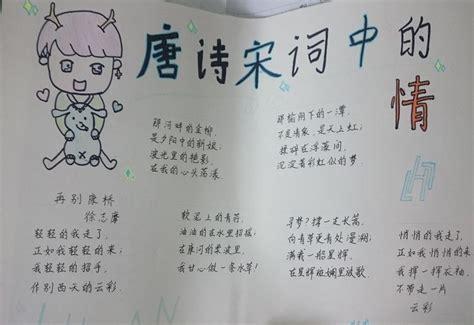 唐诗宋词中的情
再别康桥
徐志摩
轻轻的我走了,
正如我轻轻的来;
我轻轻的招手,
作别西天的云彩。
那河畔的金柳,
是夕阳中的新娘,
波光里的艳影,
在我的心头荡漾。
软泥上的青荇,
油油的在水里招摇;
在康河的柔波里,
我甘心做一条水草!
那榆阴下的一潭,
不是清泉,是天上虹;
揉碎在浮藻间,
沉淀着彩虹似的梦。
寻梦?撑一支长篙,
向青草更青处漫溯;
满载一船星辉,
在星辉斑斓里放歌。
悄悄的我走了,
正如我悄悄的来
我挥一挥衣袖,
不带走一片
云彩